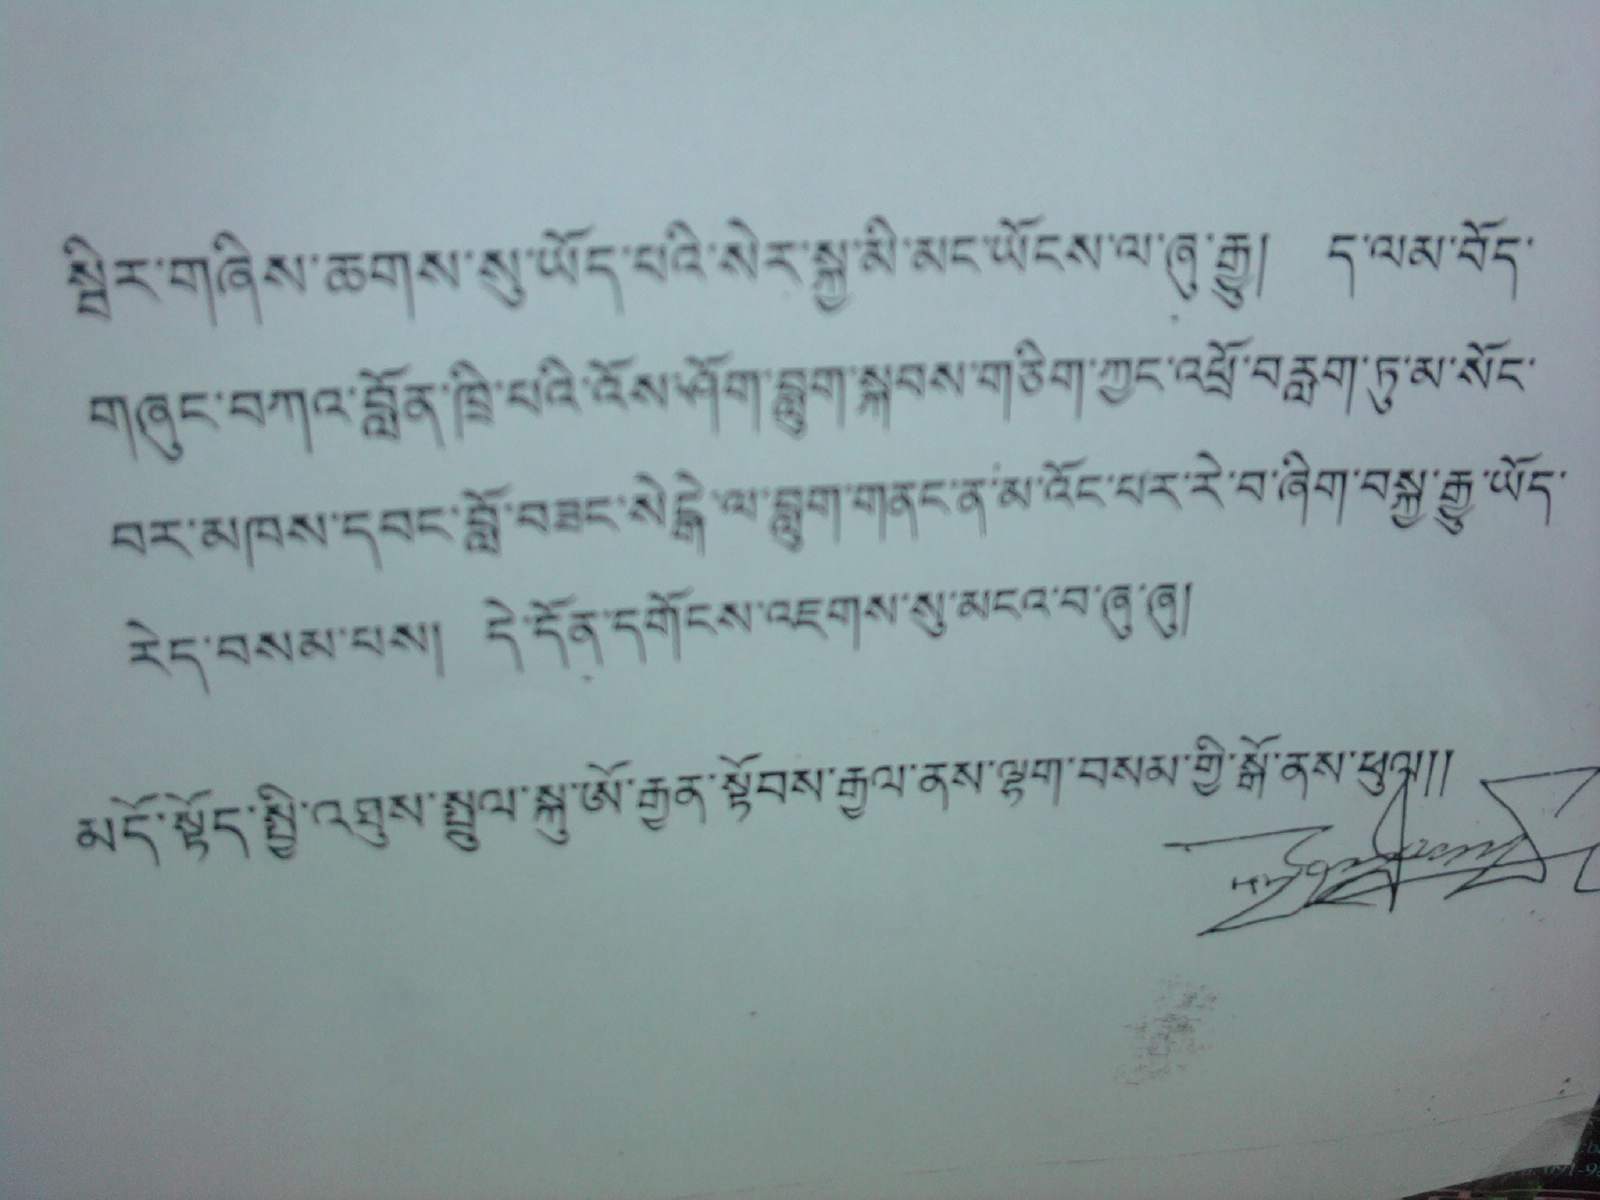 སྤིར་གཞིས་ཆགས་སུ་ཡོད་པའི་སེར་སྐྱ་མི་མང་ཡོངས་ལ་ཞུ་རྒྱུ། ད་ལམ་བོད་
གཞུང་བཀའ་བློན་ཁྲི་པའི་འོས་ཤོག་བླུག་སྐབས་གཅིག་ཀྱང་འཕྲོ་བརླག་ཏུ་མ་སོང་
བར་མཁས་དབང་བློ་བཟང་སེངྒེ་ལ་བླུག་གནང་ན་མ་འོང་པར་རེ་བ་ཞིག་བསྐྱ་རྒྱུ་ཡོད་
རེད་བསམ་པས། དེ་དོན་དགོངས་འཇགས་སུ་མངའ་བ་ཞུ་ཞུ།
མདོ་སྟོད་སྤྱི་འཐུས་སྤྲུལ་སྐུ་ཨོ་རྒྱན་སྟོབས་རྒྱལ་ནས་ལྷག་བསམ་གྱི་སྒོ་ནས་ཕུལ།།